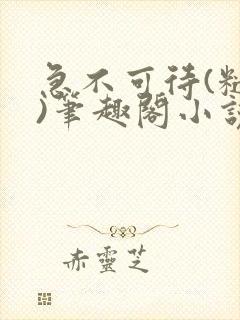 急不可待(
)筆趣閣小
赤靈芝